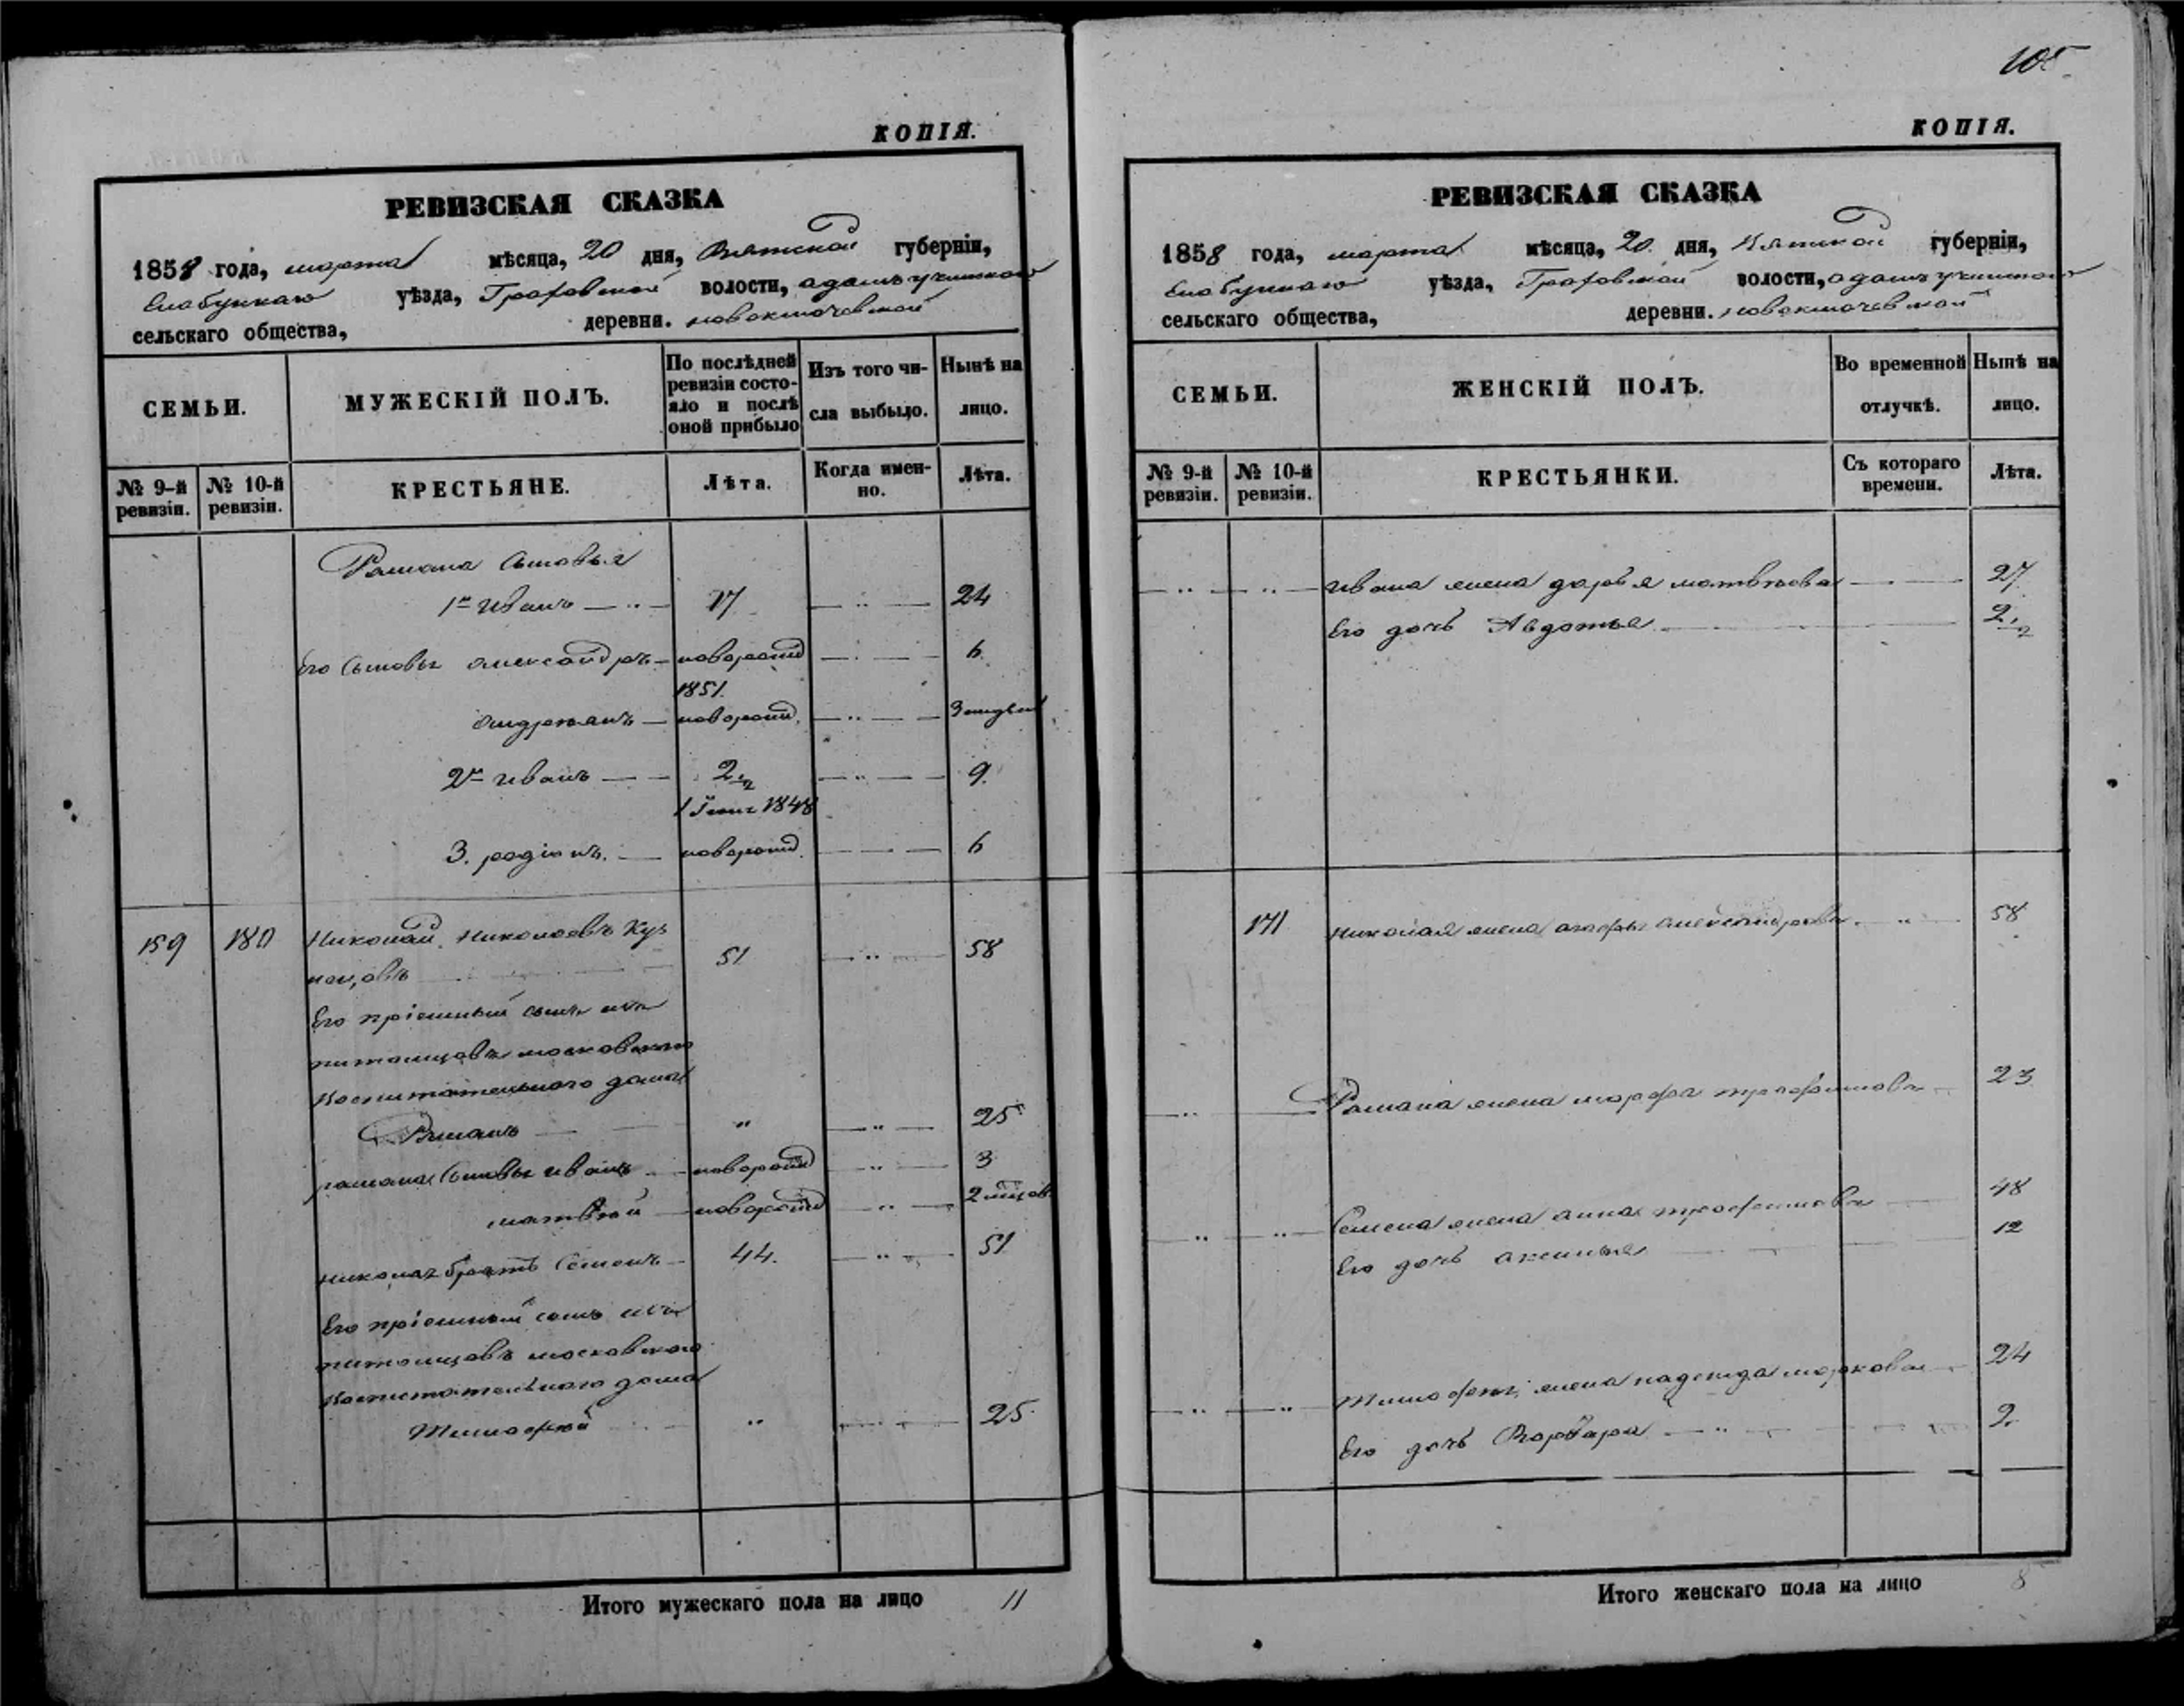 КОПІЯ.
РЕВИЗСКАЯ СКАЗКА
1858 года, марта мѣсяца, 20 дня, Вятской губерніи,
Елабужскаго уѣзда, Граховской волости,
сельскаго общества, деревни.
СЕМЬИ.
МУЖЕСКІЙ ПОЛЪ.
По послѣдней ревизіи состояло и послѣ оной прибыло
Изъ того числа выбыло.
Нынѣ на лицо.
№ 9-й ревизіи.
№ 10-й ревизіи.
КРЕСТЬЯНЕ.
Лѣта.
Когда именно.
Лѣта.
Романа Сыновья
1й Иванъ — 17 — 24
Его Сыновья Александръ — новорожд — 6
1851
Андреянъ — новорожд. — 3 недѣли
2й Иванъ — 2 1/2 — 9.
1848
3. родіонъ. — новорожд. — 6
159 180 Николай Николаевъ Куз
нецовъ 51 — 58
Его пріемный сынъ изъ
питомцовъ московскаго
воспитательнаго дома
Романъ " — 25
романа Сыновья иванъ — новорожд — 3
матвѣй — новорожд — 2 мѣсяц
николая братъ Семенъ — 44. — 51
Его пріемный сынъ изъ
питомцовъ московскаго
воспитательнаго дома
Тимофей " — 25
Итого мужескаго пола на лицо 11
105
КОПІЯ.
РЕВИЗСКАЯ СКАЗКА
1858 года, марта мѣсяца, 20 дня, Вятской губерніи,
Елабужскаго уѣзда, Граховской волости,
сельскаго общества, деревни.
СЕМЬИ.
ЖЕНСКІЙ ПОЛЪ.
Во временной отлучкѣ.
Нынѣ на лицо.
№ 9-й ревизіи.
№ 10-й ревизіи.
КРЕСТЬЯНКИ.
Съ котораго времени.
Лѣта.
Ивана жена дарья матвѣева — 27
Его дочь Авдотья — 2 1/2
николая жена Александрова — 58
Романа жена марфа трофимова 23
Семена жена анна трофимова 48
Его дочь аксинья 12
Тимофея жена надежда маркова 24
Его дочь Варвара — 2
Итого женскаго пола на лицо 8